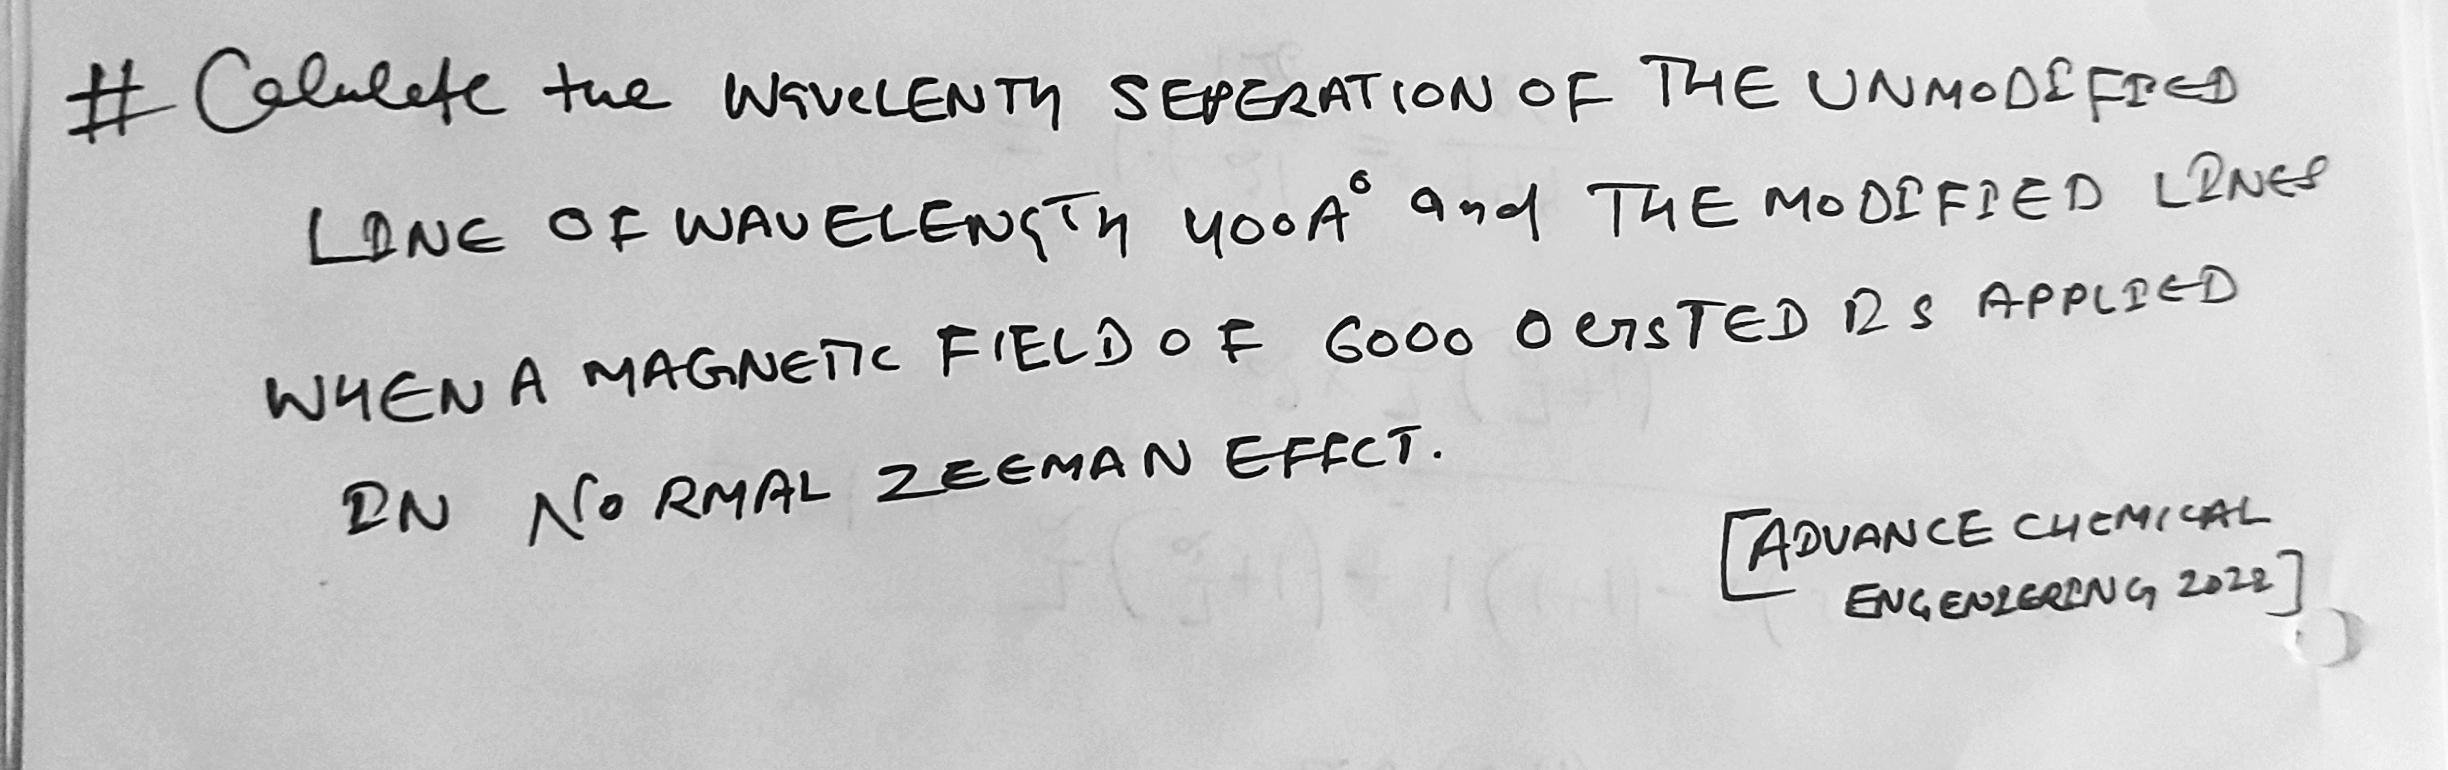 # Calulete the WAVELENTH SEPERATION OF THE UNMODIFIED
LINE OF WAVELENGTH 400A° and THE MODIFIED LINES
WHEN A MAGNETIC FIELD OF 6000 OERSTED IS APPLIED
IN NORMAL ZEEMAN EFFECT.
[ADVANCE CHEMICAL
ENGENIERING 2022]